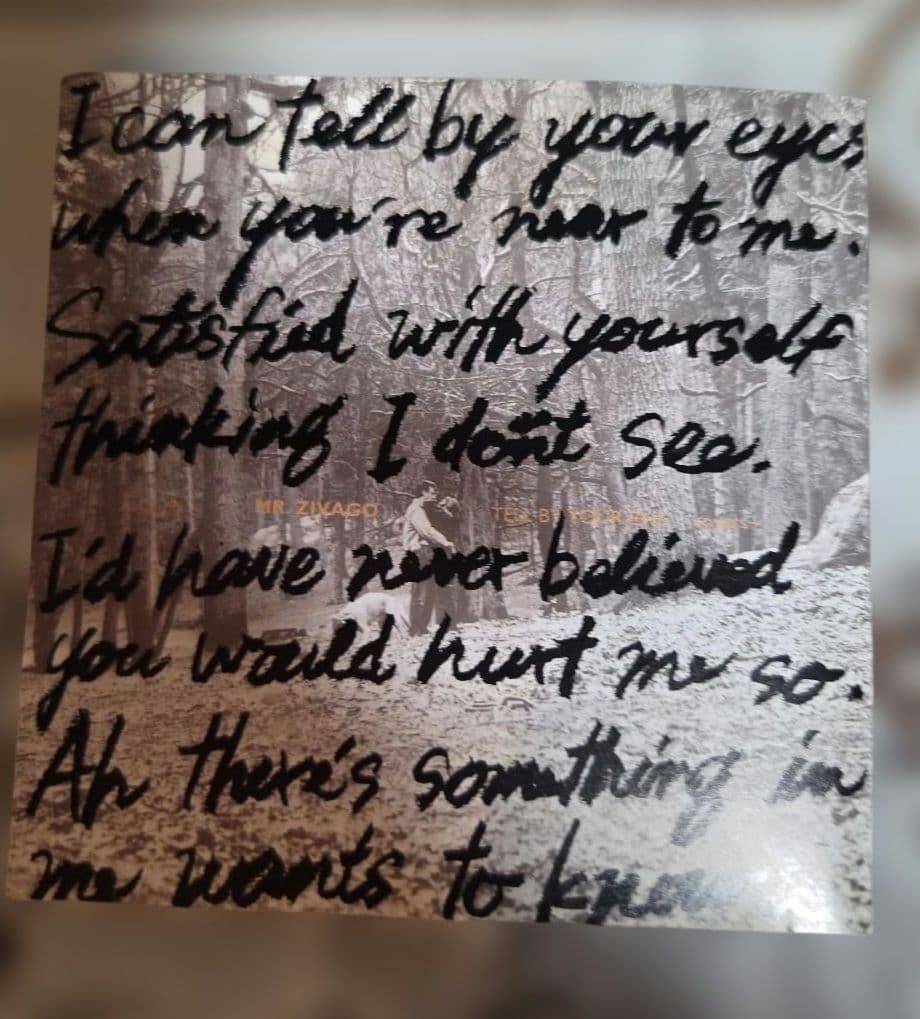 I can tell by your eyes
when you're near to me.
Satisfied with yourself
thinking I don't see.
MR. ZIVAGO TELL BY YOUR EYES
I'd have never believed
you would hurt me so.
Ah there's something in
me wants to know